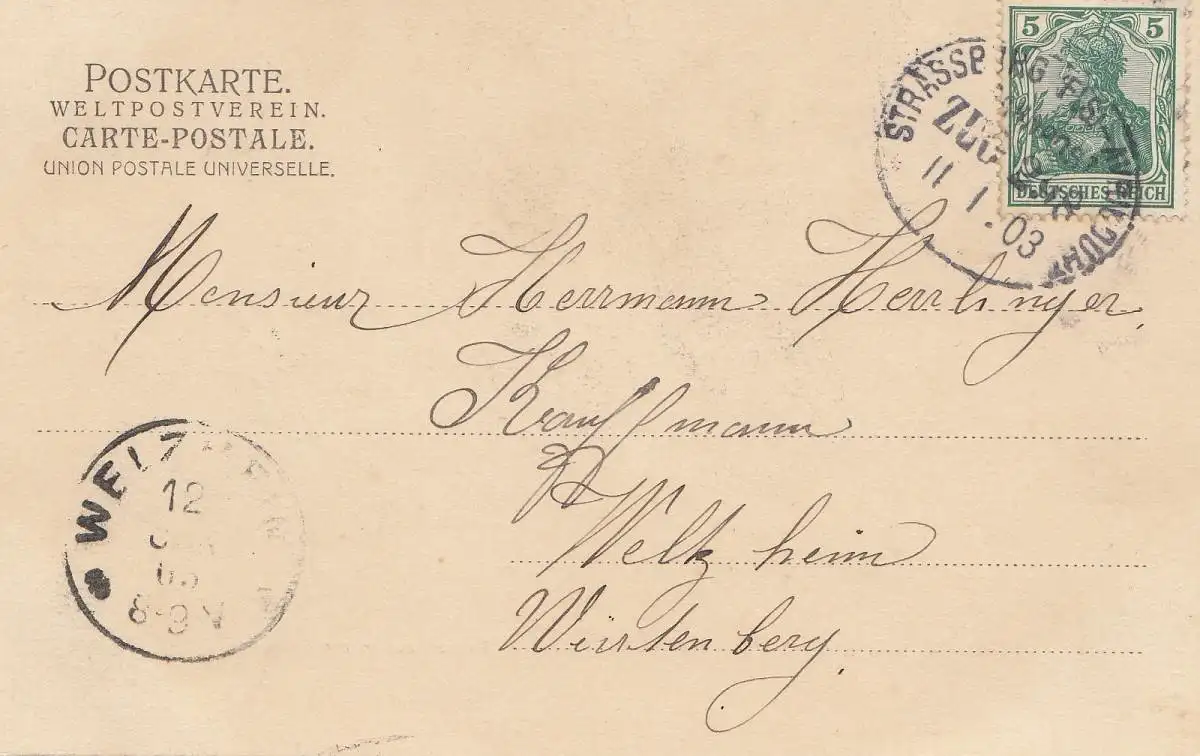 POSTKARTE.
WELTPOSTVEREIN.
CARTE-POSTALE.
UNION POSTALE UNIVERSELLE.
5 5
DEUTSCHES REICH
STRASSBURG
ZUG
11 1. 03
Monsieur Herrmann Herrlinger,
Kauffmann
Welzheim
Würtenberg.
WELZHEIM
12
JAN
03
8-9 V